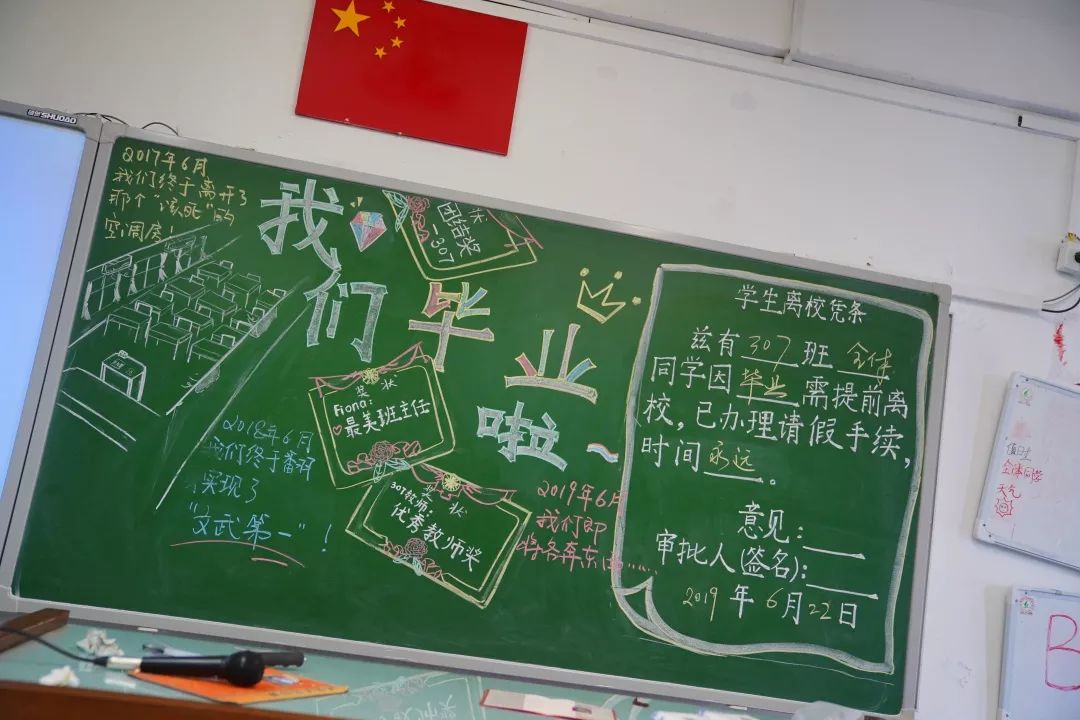 SHUOAO
2017年6月
我们终于离开了
那个“该死”的
空调房！
我们毕业啦
状
团结奖
-307
奖状
Fiona:
最美班主任
奖状
307教师:
优秀教师奖
2018年6月
我们终于
实现了
“文武第一”！
2019年6月
我们即
将各奔东西……
学生离校凭条
兹有 307 班 全体
同学因 毕业 需提前离
校，已办理请假手续，
时间 永远 。
意见:
审批人(签名):
2019 年 6 月 22 日
值日生
全体同学
天气
B